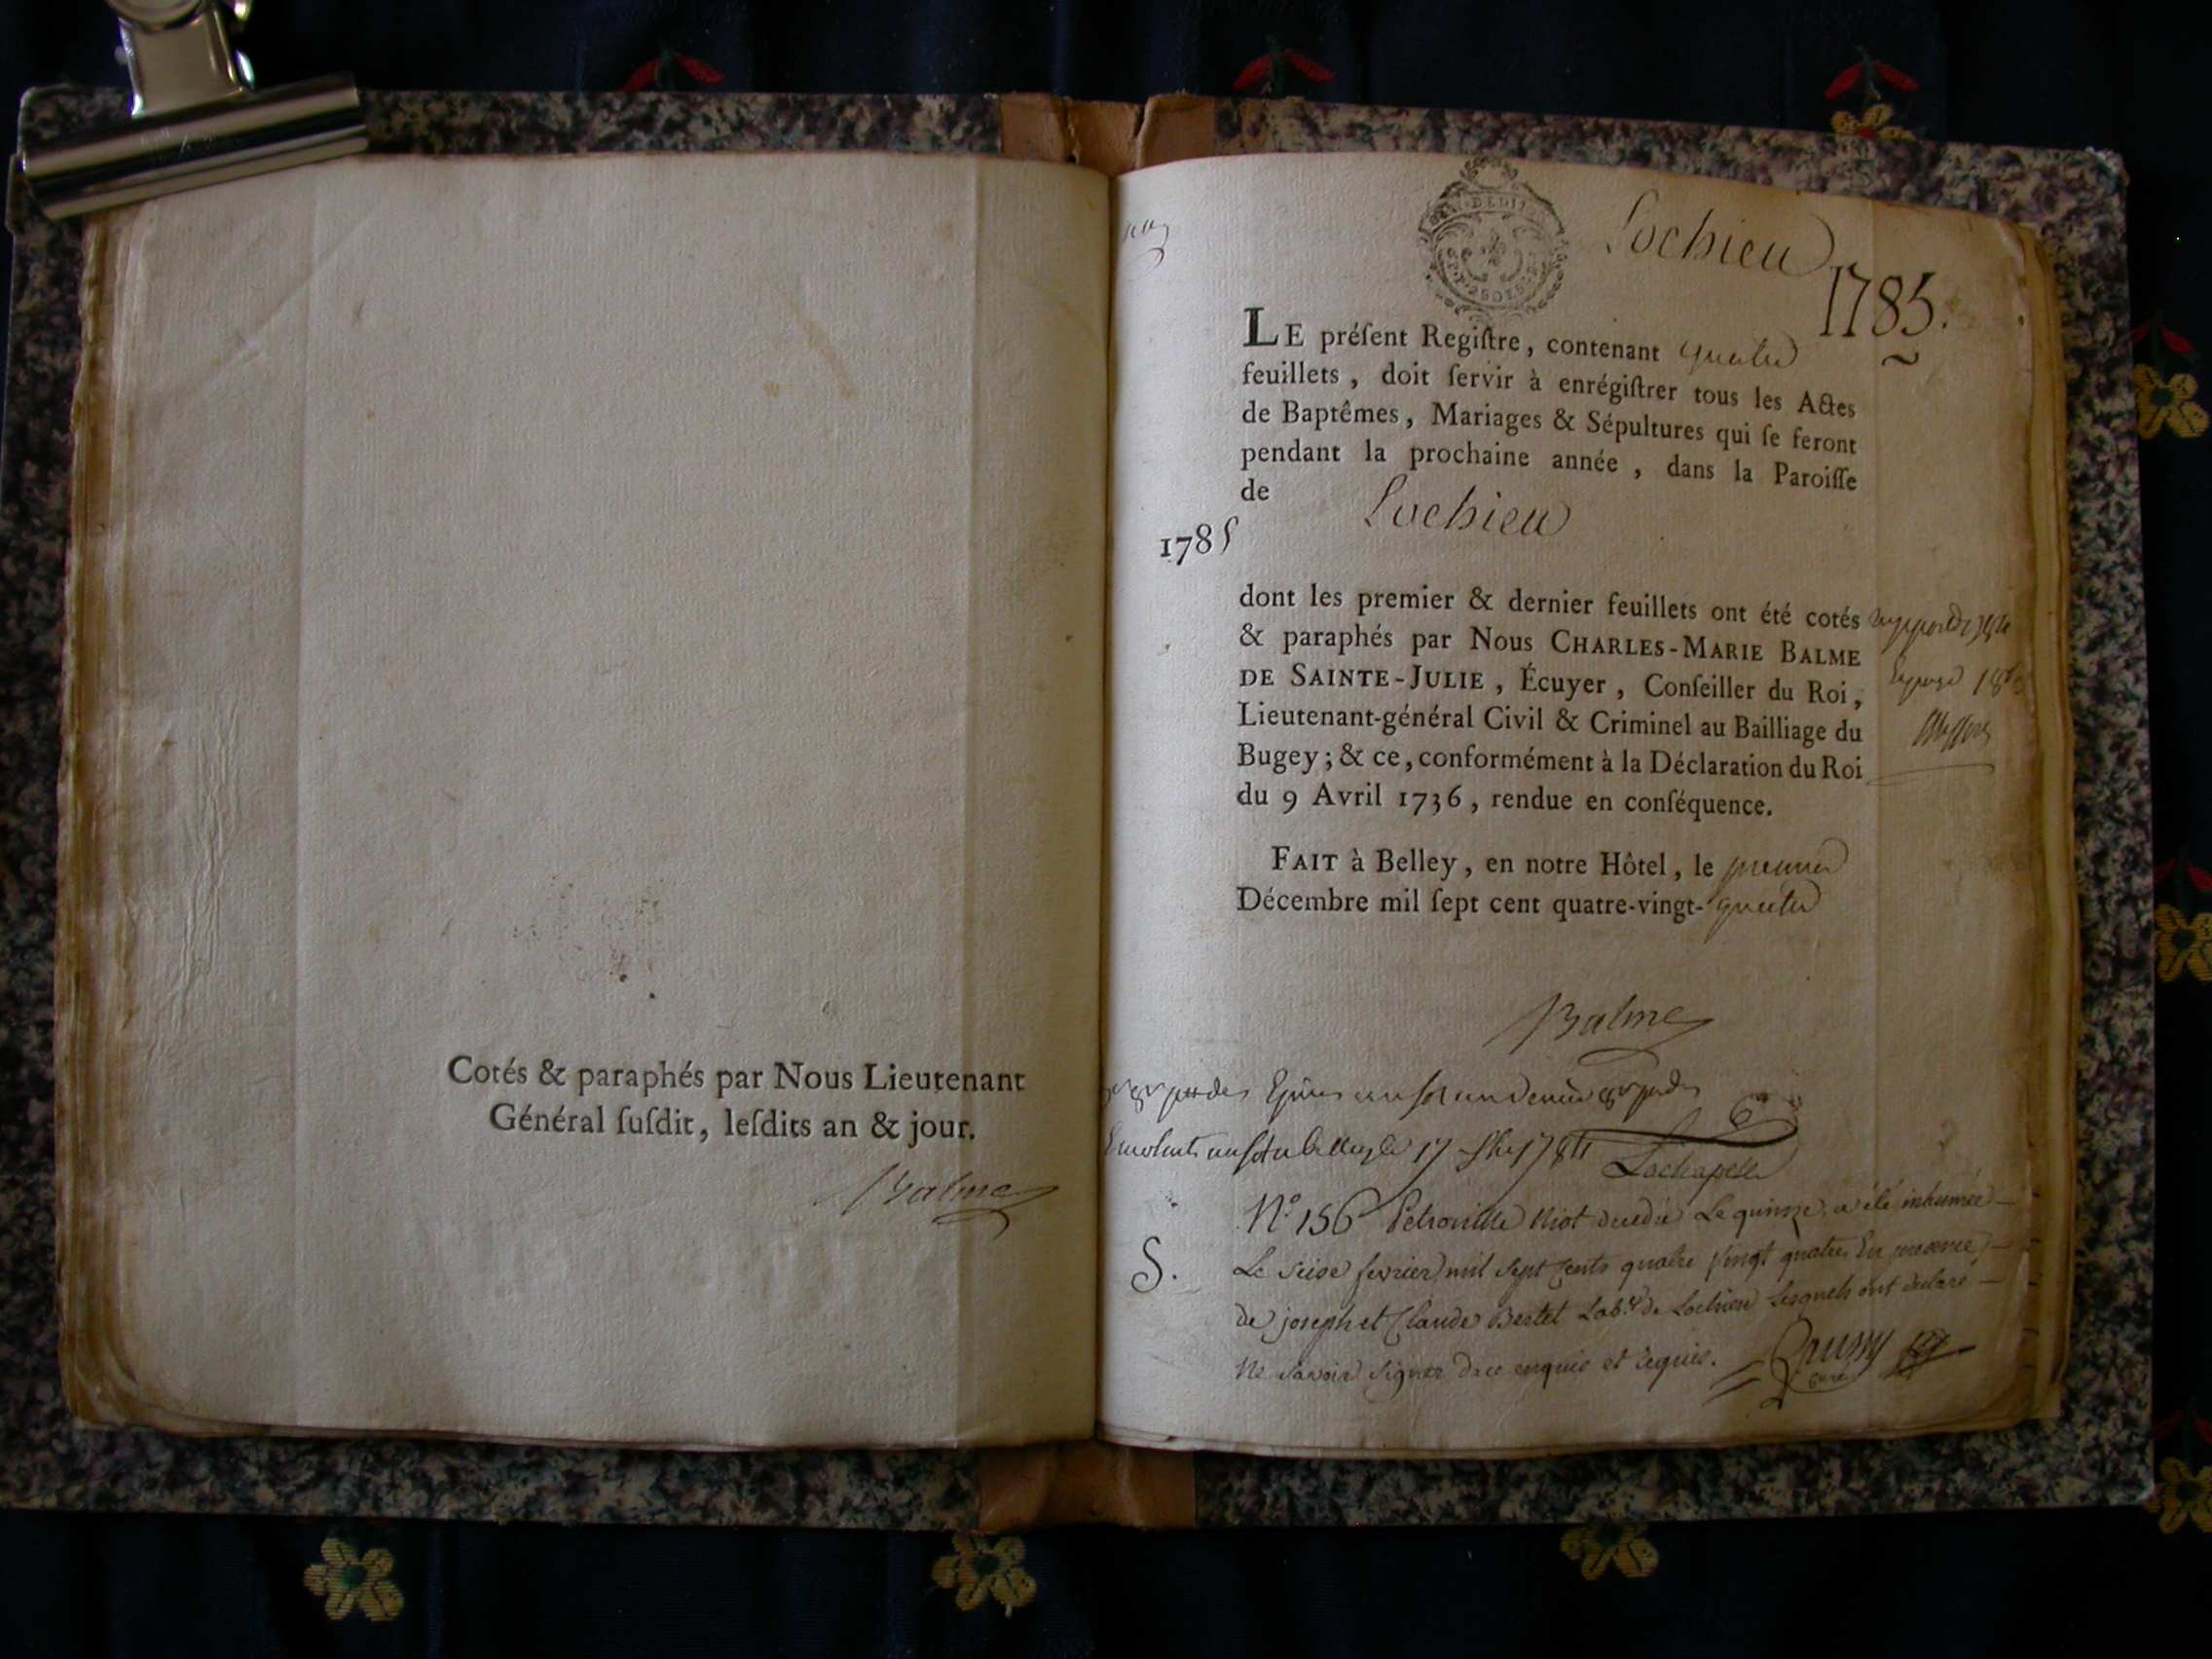 Cotés & paraphés par Nous Lieutenant
Général ſuſdit, leſdits an & jour.
Balme
Lochieu
1785.
LE préſent Regiſtre, contenant quatre
feuillets, doit ſervir à enrégiſtrer tous les Actes
de Baptêmes, Mariages & Sépultures qui ſe feront
pendant la prochaine année, dans la Paroiſſe
de Lochieu
1785
dont les premier & dernier feuillets ont été cotés
& paraphés par Nous CHARLES-MARIE BALME
DE SAINTE-JULIE, Écuyer, Conſeiller du Roi,
Lieutenant-général Civil & Criminel au Bailliage du
Bugey; & ce, conformément à la Déclaration du Roi
du 9 Avril 1736, rendue en conſéquence.
FAIT à Belley, en notre Hôtel, le premier
Décembre mil ſept cent quatre-vingt-quatre
Balme
Lachapelle
N.º 156 Petronille Niot le quinze a été inhumée
S. Le seize fevrier mil sept cents quatre vingt quatre En presence
de joseph et Claude Bertet Lab.r de Lochieu Lesquels ont declaré
Ne savoir signer enquis et requis.
curé